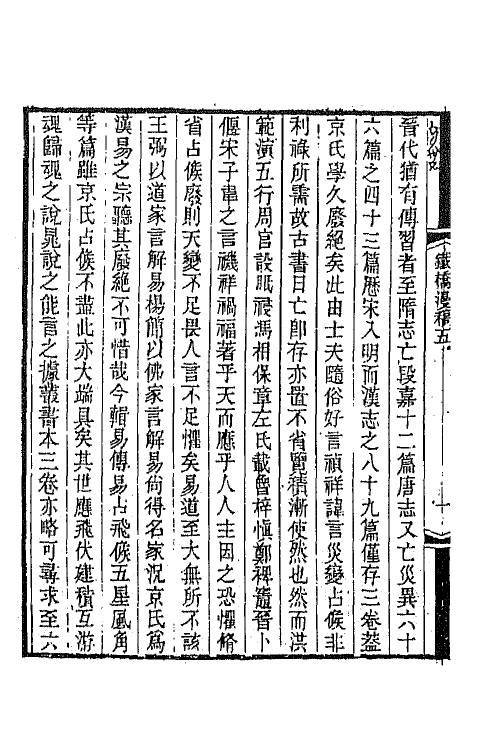 鐵橋漫稿五
晉代猶有傳習者至隋志亡段嘉十二篇唐志又亡災異六十
六篇之四十三篇歷宋入明而漢志之八十九篇僅存三卷葢
京氏學久廢絕矣此由士夫隨俗好言禎祥諱言災變占候非
利祿所需故古書日亡卽存亦置不省覽積漸使然也然而洪
範演五行周官設眡祲馮相保章左氏載魯梓愼鄭裨竈晉卜
偃宋子韋之言禨祥禍福著乎天而應乎人人主因之恐懼脩
省占候廢則天變不足畏人言不足懼矣易道至大無所不該
王弼以道家言解易楊簡以佛家言解易尙得名家況京氏爲
漢易之宗聽其廢絕不可惜哉今輯易傳易占飛候五星風角
等篇雖京氏占候不盡此亦大端具矣其世應飛伏建積互游
魂歸魂之說晁說之能言之據叢書本三卷亦略可尋求至六